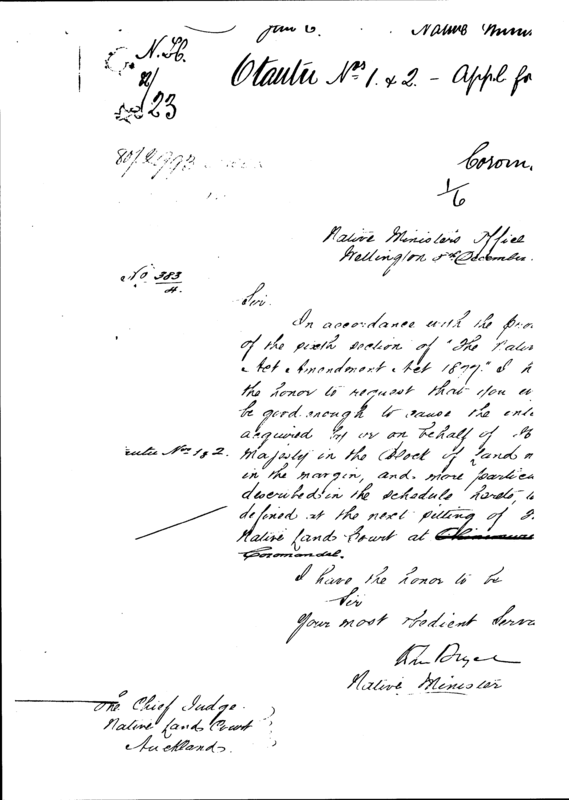 Native
N.L.C.
Otautu Nos 1. & 2. — Appl fo
23
Corom.
1/6
Native Minister's Office
Wellington 8th December
No 383/4.
Sir.
In accordance with the prov
of the sixth section of "The Native
Act Amendment Act 1877." I h
the honor to request that you w
be good enough to cause the inte
acquired by or on behalf of H
utu Nos 1 & 2. Majesty in the Block of Land n
in the margin, and more particu
described in the schedule hereto,
defined at the next sitting of
Native Land Court at
Coromandel.
I have the honor to be
Sir
Your most obedient Serva
Native Minister
The Chief Judge.
Native Land Court
Auckland.